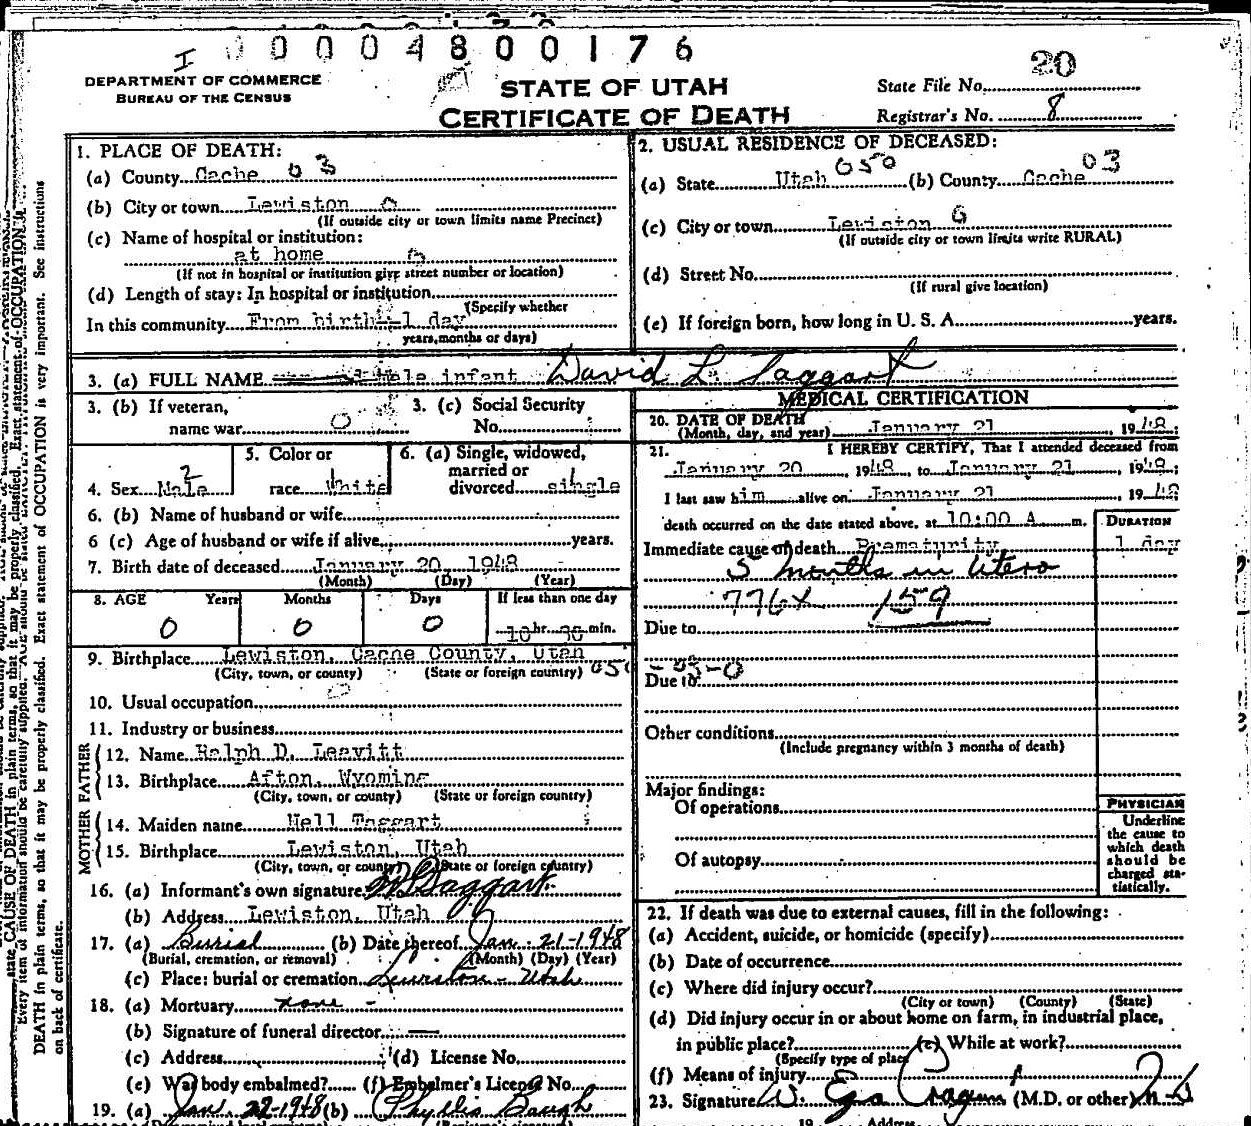 0 0 0 0 4 8 0 0 1 7 6
DEPARTMENT OF COMMERCE
BUREAU OF THE CENSUS
STATE OF UTAH
CERTIFICATE OF DEATH
State File No. 20
Registrar's No. 8
1. PLACE OF DEATH:
(a) County Cache 03
(b) City or town Lewiston 0
(If outside city or town limits name Precinct)
(c) Name of hospital or institution:
at home
(If not in hospital or institution give street number or location)
(d) Length of stay: In hospital or institution
(Specify whether
In this community From birth - 1 day
years, months or days)
2. USUAL RESIDENCE OF DECEASED:
(a) State Utah 050 (b) County Cache 03
(c) City or town Lewiston
(If outside city or town limits write RURAL)
(d) Street No.
(If rural give location)
(e) If foreign born, how long in U. S. A. years.
3. (a) FULL NAME Male infant David L. Taggart
3. (b) If veteran,
name war 0
3. (c) Social Security
No.
4. Sex Male 2
5. Color or
race White
6. (a) Single, widowed,
married or
divorced single
6. (b) Name of husband or wife
6 (c) Age of husband or wife if alive years.
7. Birth date of deceased January 20, 1948
(Month) (Day) (Year)
8. AGE Years Months Days If less than one day
0 0 0 hr. min.
9. Birthplace Lewiston, Cache County, Utah
(City, town, or county) (State or foreign country)
10. Usual occupation
11. Industry or business
FATHER
12. Name Ralph D. Leavitt
13. Birthplace Afton, Wyoming
(City, town, or county) (State or foreign country)
MOTHER
14. Maiden name Nell Taggart
15. Birthplace Lewiston, Utah
(City, town, or county) (State or foreign country)
16. (a) Informant's own signature Taggart
(b) Address Lewiston, Utah
17. (a) Burial (b) Date thereof Jan. 21-1948
(Burial, cremation, or removal) (Month) (Day) (Year)
(c) Place: burial or cremation Lewiston - Utah
18. (a) Mortuary none -
(b) Signature of funeral director —
(c) Address (d) License No.
(e) Was body embalmed? (f) Embalmer's License No.
19. (a) Jan. 22-1948 (b) Phyllis Baugh
MEDICAL CERTIFICATION
20. DATE OF DEATH
(Month, day, and year) January 21, 1948;
21. I HEREBY CERTIFY, That I attended deceased from
January 20 1948, to January 21, 1948;
I last saw him alive on January 21, 1948
death occurred on the date stated above, at 10:00 A. m.
DURATION
Immediate cause of death Prematurity 1 day
5 months in Utero
776X 159
Due to
Due to
Other conditions
(Include pregnancy within 3 months of death)
Major findings:
Of operations
Of autopsy
PHYSICIAN
Underline
the cause to
which death
should be
charged sta-
tistically.
22. If death was due to external causes, fill in the following:
(a) Accident, suicide, or homicide (specify)
(b) Date of occurrence
(c) Where did injury occur?
(City or town) (County) (State)
(d) Did injury occur in or about home on farm, in industrial place,
in public place? (e) While at work?
(Specify type of place)
(f) Means of injury
23. Signature W. (M.D. or other)
19 Address
state CAUSE OF DEATH in plain terms, so that it may be properly classified. Exact statement of OCCUPATION
Every item of information should be carefully supplied.
DEATH in plain terms, so that it may be properly classified. Exact statement of OCCUPATION is very important. See instructions
on back of certificate.